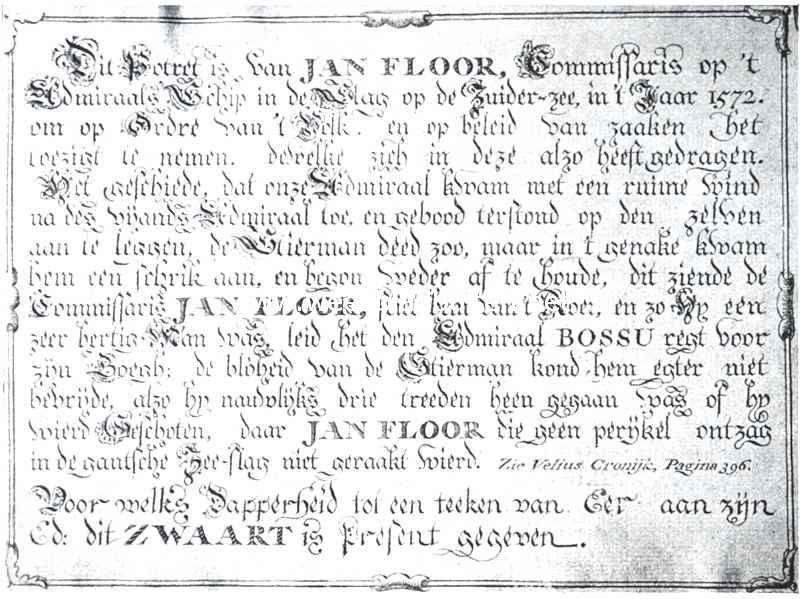 Dit Potret is van JAN FLOOR, Commissaris op 't
Admiraals Schip in de Slag op de Zuider-zee, in 't Jaar 1572.
om op Ordre van 't Volk. en op beleid van zaaken het
toezigt te nemen. dewelke zich in deze alzo heeft gedragen.
Het geschiede, dat onze Admiraal kwam met een ruime wind
na des vyands Admiraal toe, en gebood terstond op den zelven
aan te leggen, de Stierman deed zoo, maar in 't genake kwam
hem een schrik aan, en begon weder af te houde, dit ziende de
Commissaris JAN FLOOR, hem van 't Roer, en zo Hy een
zeer hertig Man was, leid het den Admiraal BOSSU regt voor
zijn Boegh; de blôheid van de Stierman kond hem egter niet
bevrijde, alzo hy nauwlijks drie treeden heen gegaan was of hy
wierd Geschoten, daar JAN FLOOR die geen perijkel ontzag
in de gantsche Zee-slag niet geraakt wierd. Zie Velius Cronijk, Pagina 396.
Voor welks Dapperheid tot een teeken van Eer aan zijn
Ed: dit ZWAART is Present gegeven.